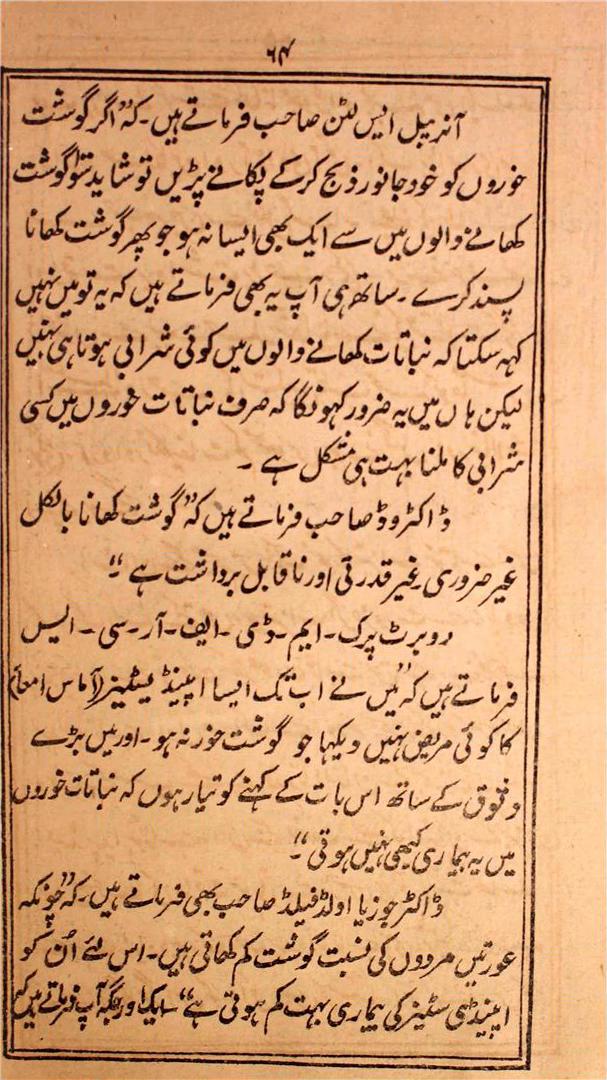 ۶۴
آنریبل ایس لٹن صاحب فرماتے ہیں۔ کہ "اگر گوشت
خوروں کو خود جانور ذبح کر کے پکانے پڑیں تو شاید سَو گوشت
کھانے والوں میں سے ایک بھی ایسا نہ ہو جو پھر گوشت کھانا
پسند کرے ۔ ساتھ ہی آپ یہ بھی فرماتے ہیں کہ یہ تو میں نہیں
کہہ سکتا کہ نباتات کھانے والوں میں کوئی شرابی ہوتا ہی نہیں
لیکن ہاں میں یہ ضرور کہونگا کہ صرف نباتات خوروں میں کسی
شرابی کا ملنا بہت ہی مشکل ہے ۔
ڈاکٹر ووڈ صاحب فرماتے ہیں کہ "گوشت کھانا بالکل
غیر ضروری غیر قدرتی اور ناقابل برداشت ہے"
روبرٹ پرک ۔ ایم ۔ ڈی ۔ ایف ۔ آر ۔ سی ۔ ایس
فرماتے ہیں کہ "میں نے اب تک ایسا اپینڈیسٹیز (آماس امعا)
کا کوئی مریض نہیں دیکھا جو گوشت خور نہ ہو ۔ اور میں بڑے
وثوق کے ساتھ اس بات کے کہنے کو تیار ہوں کہ نباتات خوروں
میں یہ بیماری کبھی نہیں ہوتی"۔
ڈاکٹر جوزیا اولڈ فیلڈ صاحب بھی فرماتے ہیں۔ کہ "چونکہ
عورتیں مردوں کی نسبت گوشت کم کھاتی ہیں۔ اس لئے اُن کو
اپینڈی سٹیز کی بیماری بہت کم ہوتی ہے" ایک اور جگہ آپ فرماتے ہیں کہ